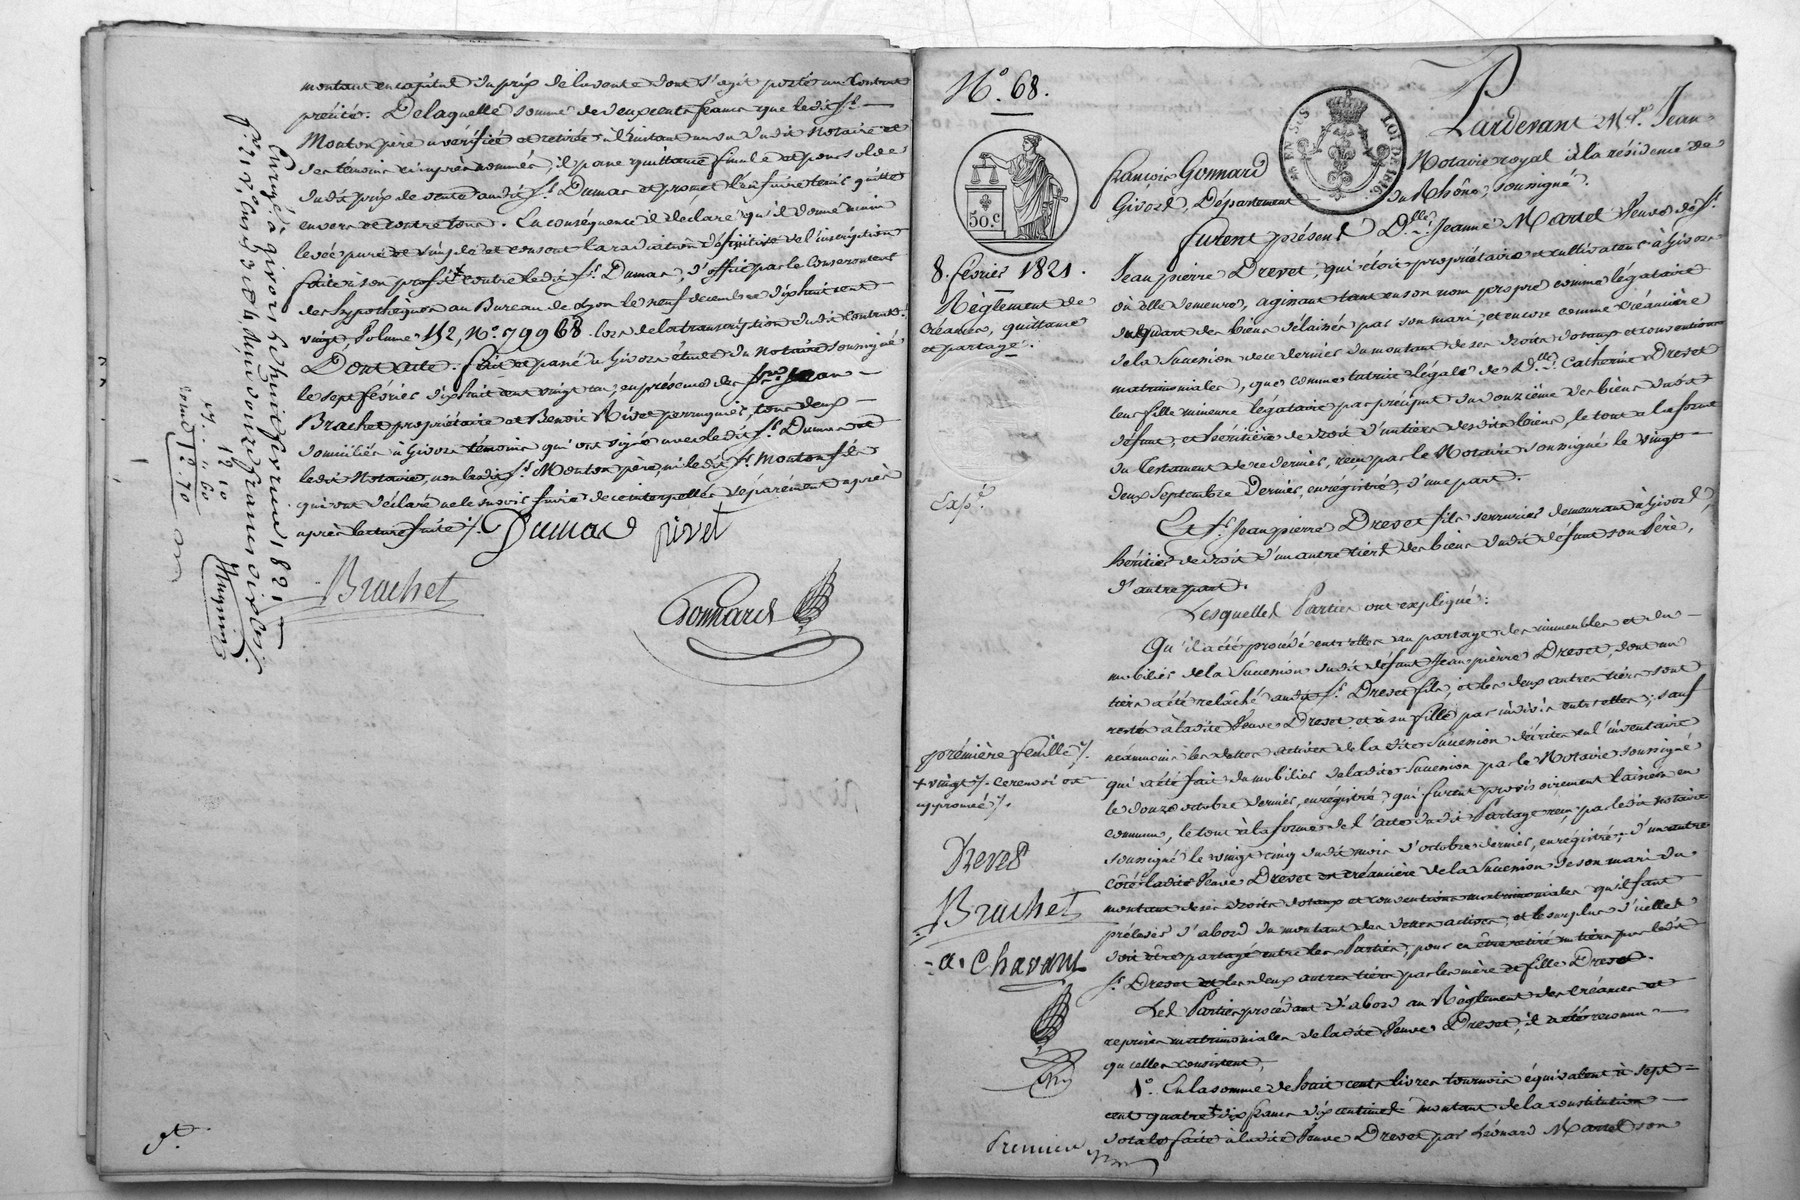 montant en capital du prix de la vente dont s'agit portée au contrat
précité. De laquelle somme de deux cents francs que ledit Sr.
Mouton père a vérifiée et retirée à l'instant au vu dudit Notaire et
des témoins ci-après nommés, il passe quittance finale et pour solde
dudit prix de vente audit Sr. Dumas et promet l'en faire tenir quitte
envers et contre tous. En conséquence il déclare qu'il donne main
levée pure et simple et consent la radiation définitive de l'inscription
faite à son profit contre ledit Sr. Dumas, d'office par le Conservateur
des hypothèques au Bureau de Lyon le neuf décembre dix huit cent
vingt, Volume 152, No. 79968. lors de la transcription dudit contrat.
Dont acte. fait et passé à Givors étude du Notaire soussigné
le sept février dix huit cent vingt un, en présence des Srs. Jean
Brachet propriétaire et Benoit Rivet perruquier, tous deux
domiciliés à Givors témoins qui ont signé avec ledit Sr. Dumas et
ledit Notaire, non ledit Sr. Mouton père, ni ledit Sr. Mouton fils
qui ont déclaré ne le savoir faire de ce interpellés séparément après
après lecture faite ./.
Dumas rivet
Brachet
Gonnard
Enregé à givors le huit fevrier 1821
No. 68.
EN SUS
LOI DE 1816.
50.c
8. février 1821.
Règlement de
créances, quittance
et partage.
Exp.é
Pardevant Me. Jean-
François Gonnard Notaire royal à la résidence de
Givors, Département du Rhône, soussigné.
furent présens Dlle. Jeanne Martel Veuve de Sr.
Jean pierre Drevet, qui étoit propriétaire et cultivateur à Givors
où elle demeure, agissant tant en son nom propre comme légataire
du quart des biens délaissés par son mari, et encore comme créancière
de la Succession de ce dernier du montant de ses droits dotaux et conventions
matrimoniales, que comme tutrice légale de Dlle. Catherine Drevet
leur fille mineure légataire par préciput du douzième des biens dudit
défunt, et héritière de droit d'un tiers desdits biens, le tout à la forme
du Testament de ce dernier, reçu par le Notaire soussigné le vingt
deux Septembre dernier, enregistré, d'une part.
Et Sr. Jean pierre Drevet fils serrurier demeurant à Givors,
héritier de droit d'un autre tiers des biens dudit défunt son Père,
d'autre part.
Lesquelles Parties ont expliqué:
Qu'il a été procédé entr'elles au partage des immeubles et du
mobilier de la Succession dudit défunt Jean pierre Drevet, dont un
tiers a été relâché audit Sr. Drevet fils, et les deux autres tiers sont
restés à ladite Veuve Drevet et à sa fille par indivis entr'elles; sauf
néanmoins les dettes actives de ladite Succession décrites en l'inventaire
qui a été fait du mobilier de ladite Succession par le Notaire soussigné
le douze octobre dernier, enregistré, qui furent provisoirement laissées en
commun, le tout à la forme de l'acte dudit Partage reçu par ledit notaire
soussigné le vingt cinq dudit mois d'octobre dernier, enregistré; d'un autre
côté ladite Veuve Drevet est créancière de la Succession de son mari du
montant de ses droits dotaux et conventions matrimoniales qu'il faut
prélever d'abord du montant des dettes actives, et le surplus d'icelles
doit être partagé entre les Parties, pour en être retiré un tiers par ledit
Sr. Drevet et les deux autres tiers par les mère et fille Drevet.
Les Parties procédant d'abord au Règlement des créances et
reprises matrimoniales de ladite Veuve Drevet, il a été reconnu
qu'elles consistent,
1o. En la somme de huit cents livres tournois équivalent à sept
cent quatre + dix francs dix centimes montant de la constitution
dotale faite à ladite Veuve Drevet par Léonard Martel son
première feuille ./.
+ vingt ./. ce renvoi est
approuvé ./.
Drevet
Brachet
a. Chavant
Première